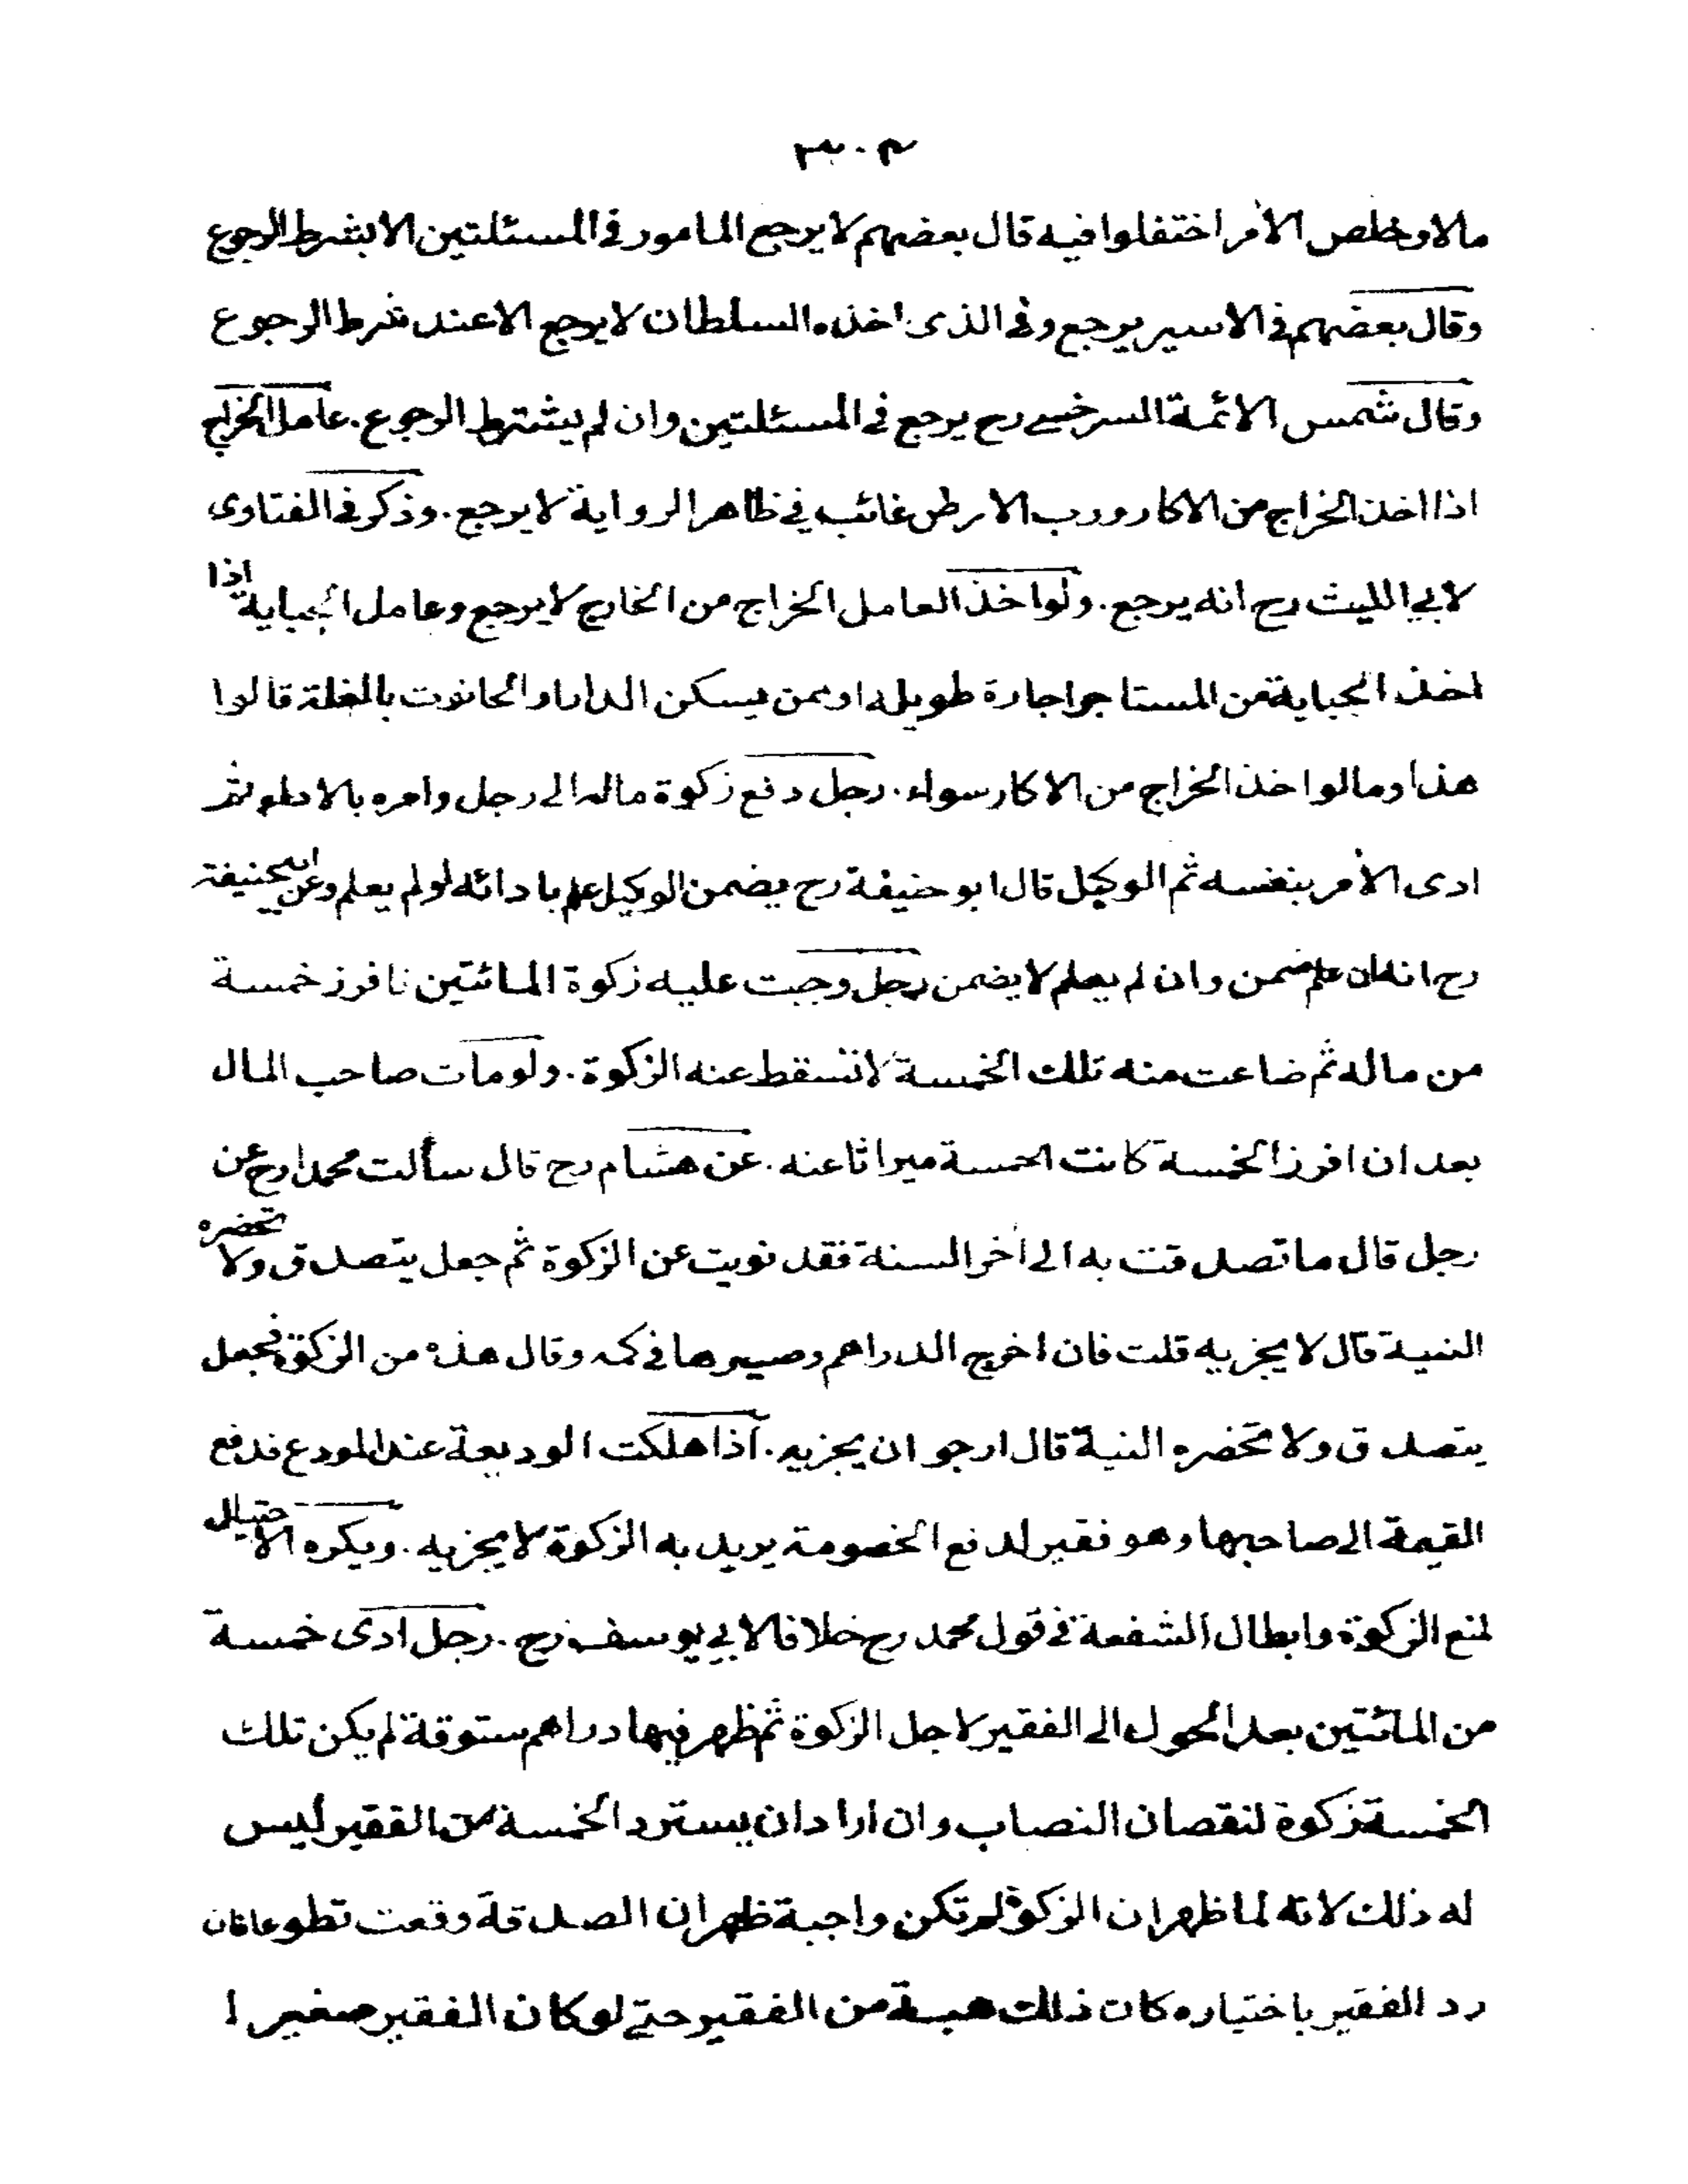 ٣٠٣
مالا وخلص الأمر اختفلوا فيه قال بعضهم لا يرجع المامور فى المسئلتين الا بشرط الرجوع
وقال بعضهم فى الاسير يرجع وفى الذى اخذه السلطان لا يرجع الا عند شرط الرجوع
وقال شمس الائمة السرخسے رح يرجع فى المسئلتين وان لم يشترط الرجوع. عامل الخراج
اذا اخذ الخراج من الاكار ورب الارض غائب فى ظاهر الرواية لا يرجع. وذكر فى الفتاوى
لابى الليث رح انه يرجع. ولو اخذ العامل الخراج من الخارج لا يرجع وعامل الجباية اذا
اخذ الجباية من المستاجر اجارة طويلة او ممن يسكن الدار او الحانوت بالغلة قالوا
هذا وما لو اخذ الخراج من الاكار سواء. رجل دفع زكوة ماله الى رجل وامره بالاداء ثم
ادى الأمر بنفسه ثم الوكيل قال ابو حنيفة رح يضمن الوكيل علم بادائه او لم يعلم وعن ابيحنيفة
رح انه ان علم ضمن وان لم يعلم لا يضمن رجل وجبت عليه زكوة المائتين فافرز خمسة
من ماله ثم ضاعت منه تلك الخمسة لا تسقط عنه الزكوة. ولو مات صاحب المال
بعد ان افرز الخمسة كانت الخمسة ميراثا عنه. عن هشام رح قال سألت محمدا رح عن
رجل قال ما تصدقت به الى أخر السنة فقد نويت عن الزكوة ثم جعل يتصدق ولا تحضره
النية قال لا يجزيه قلت فان اخرج الدراهم وصيرها فى كمه وقال هذه من الزكوة فجعل
يتصدق ولا تحضره النية قال ارجو ان يجزيه. اذا هلكت الوديعة عند المودع فدفع
القيمة الى صاحبها وهو فقير لدفع الخصومة يريد به الزكوة لا يجزيه. ويكره الاحتيال
لمنع الزكوة وابطال الشفعة فى قول محمد رح خلافا لابى يوسف رح. رجل ادى خمسة
من المائتين بعد الحول الى الفقير لاجل الزكوة ثم ظهر فيها دراهم ستوقة لم يكن تلك
الخمسة زكوة لنقصان النصاب وان اراد ان يسترد الخمسة من الفقير ليس
له ذلك لانه لما ظهر ان الزكوة لم تكن واجبة ظهر ان الصدقة وقعت تطوعا فان
رد الفقير باختياره كان ذلك هبة من الفقير حتے لو كان الفقير صغيرا